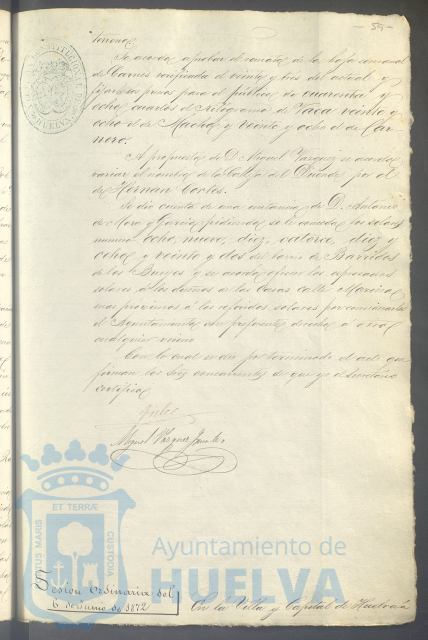 - 59 -
terreno.
Se acordó aprobar el remate de la baja semanal
de Carnes verificada el veinte y tres del actual y
fijar los precios para el público de cuarenta y
ocho cuartos el Kilogramo de Vaca veinte y
ocho el de Macho y veinte y ocho el de Car-
nero.
A propuesta de D. Miguel Vazquez se acordó
variar el nombre de la Calleja del Duende por el
de Hernan Cortes.
Se dio cuenta de una instancia de D. Antonio
de Mora y Garcia pidiendo se le conceda los solares
numero ocho, nueve, diez, catorce, diez y
ocho y veinte y dos del barrio de Barridos
de los Burgos y se acordó ofrecer los espresados
solares á los dueños de las Casas calle Marina
mas proximos á los referidos solares por
el Ayuntamiento con preferente derecho á otro
cualquier vecino
Con lo cual se dio por terminado el acto que
firman los Sres concurrentes de que yo el Secretario
certifico
Miguel Vazquez
CONSTITUCIONAL
HUELVA
ET TERRÆ
MARIS
CUSTODIA
Ayuntamiento de
HUELVA
Sesion ordinaria del
6 de Junio de 1872
En la Villa y Capital de Huelva á